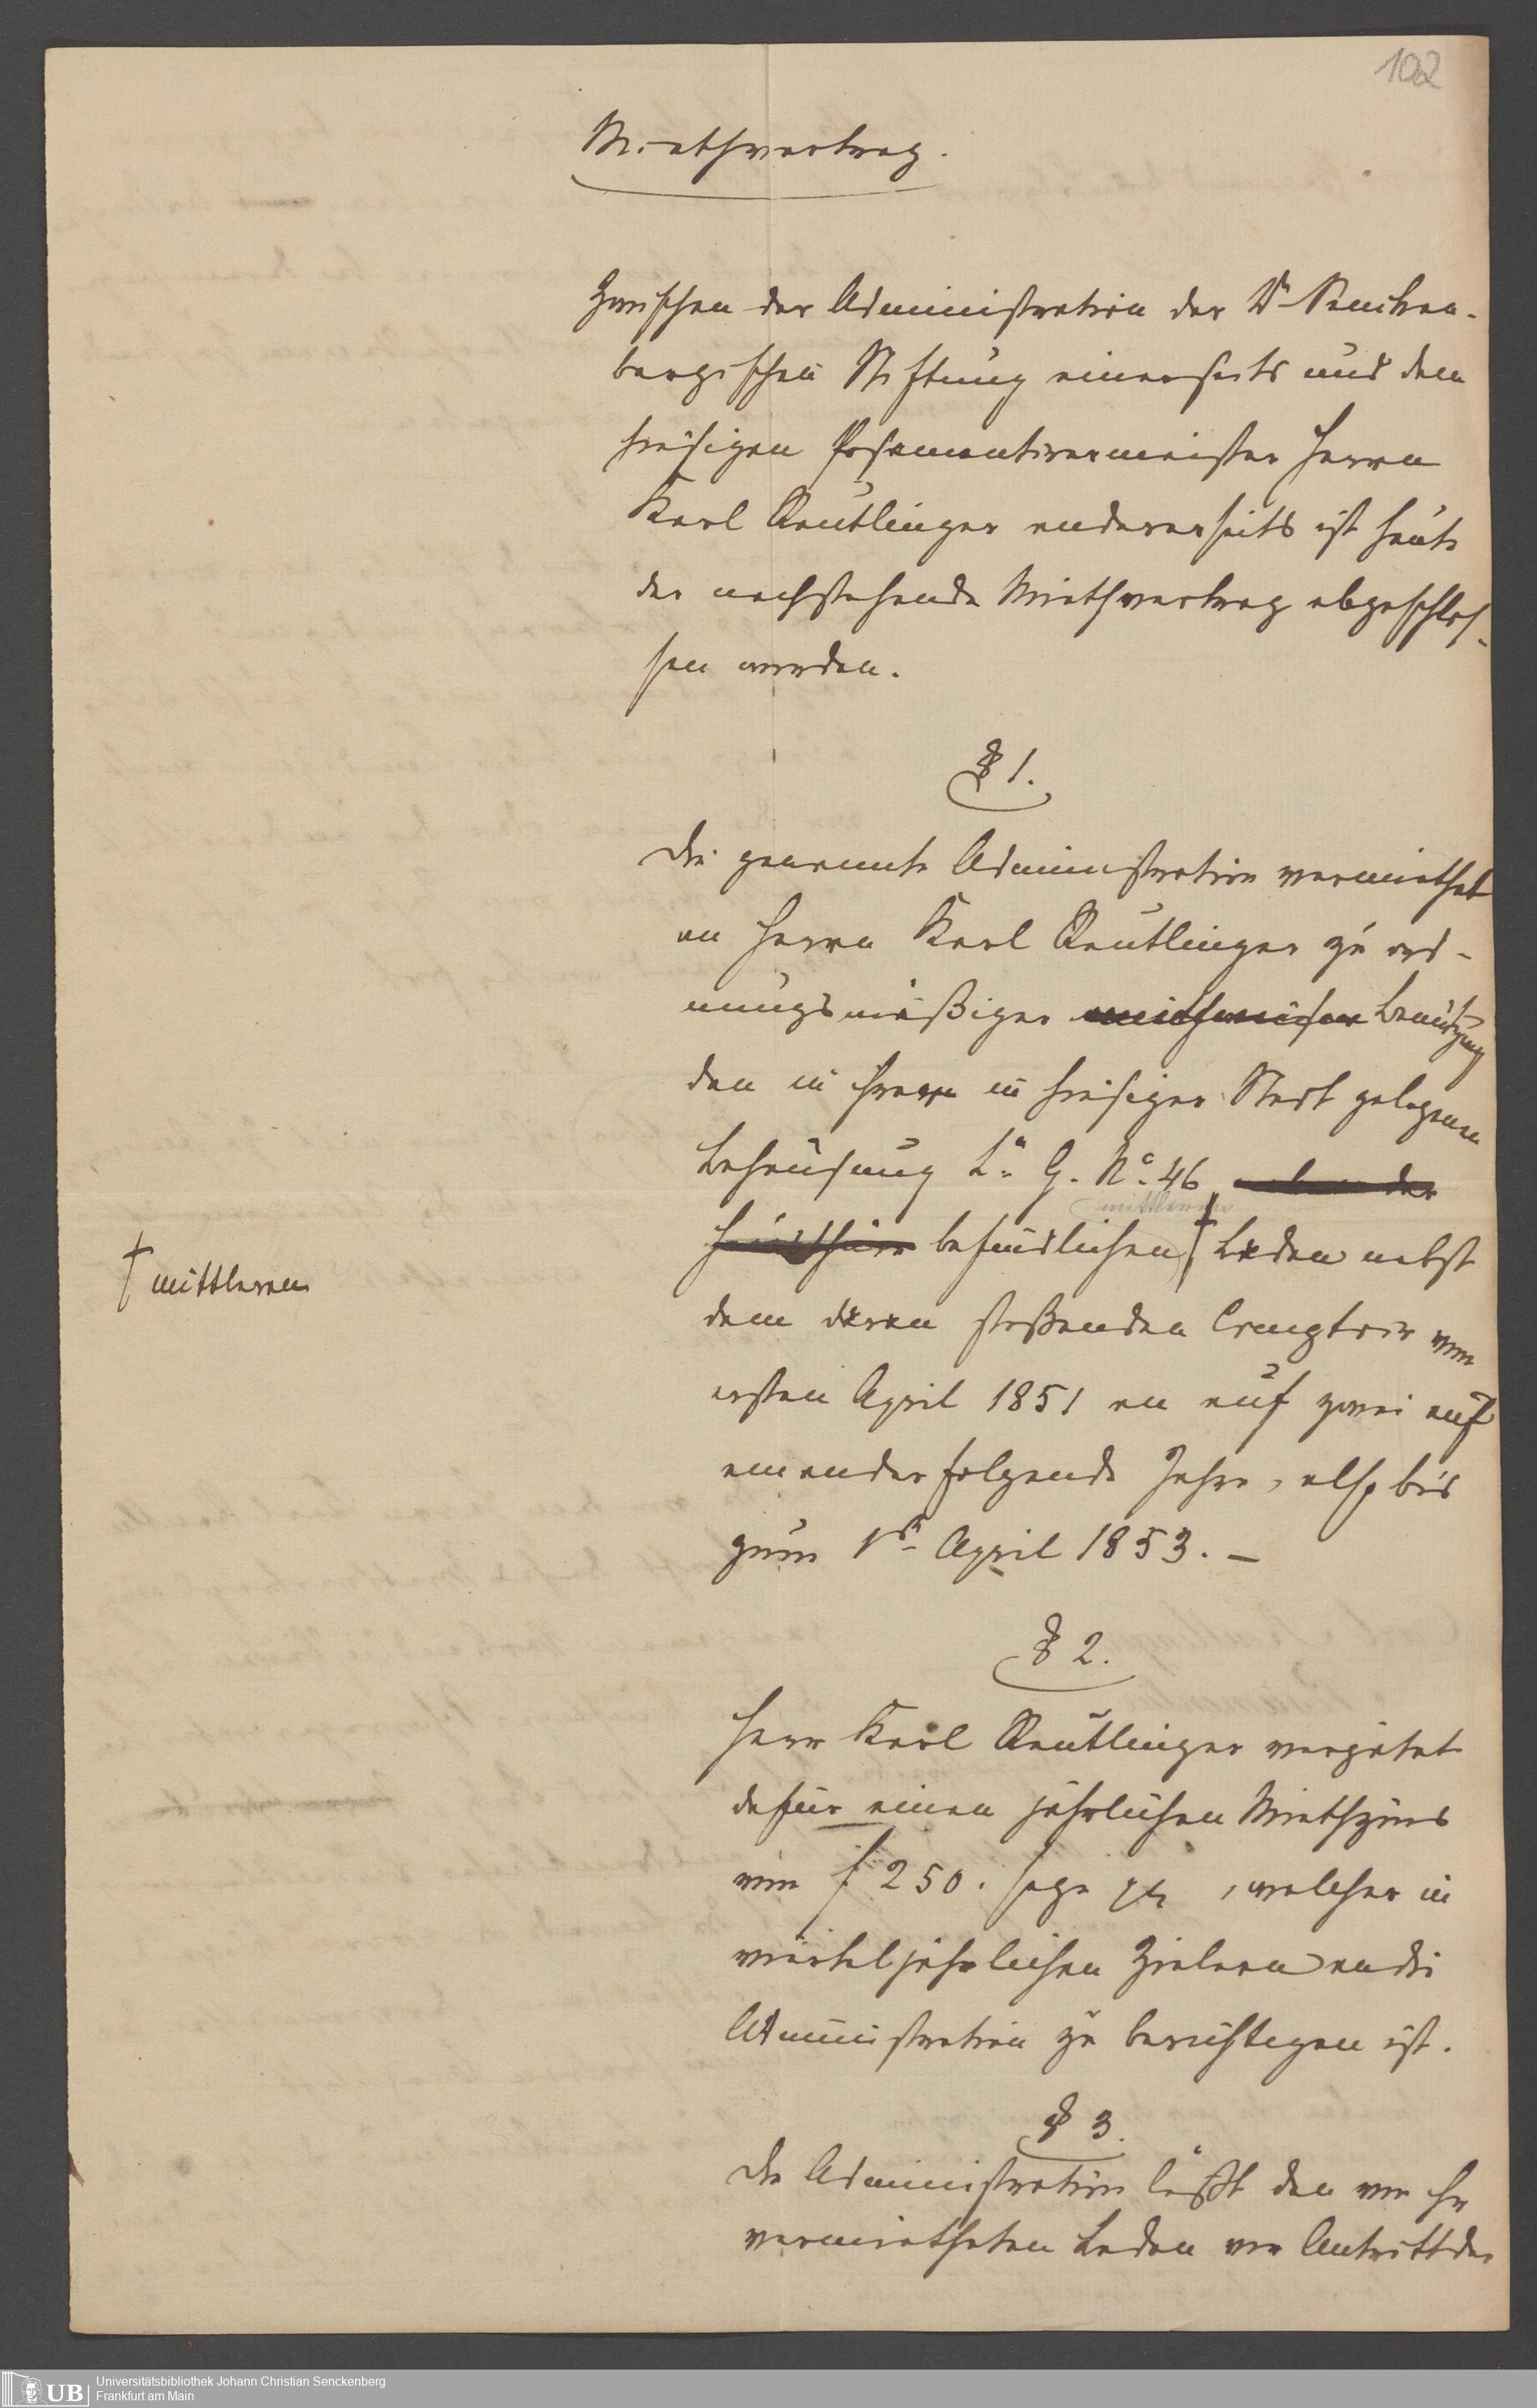 102
Miethvertrag.
Zwischen der Administration der Dr Sencken-
bergischen Stiftung einerseits und dem
hiesigen Posamentirermeister Herrn
Karl Reutlinger andererseits ist heute
der nachstehende Miethvertrag abgeschlos-
sen worden.
§ 1.
Die genannte Administration vermiethet
an Herrn Karl Reutlinger zu ord-
nungsmäßiger miethweisen Benutzung
den in ihrer in hiesiger Stadt gelegenen
Behausung La. G. No. 46 neben der
mittleren
Hausthüre befindlichen † Laden nebst
† mittleren
dem daran stoßenden Comptoir vom
ersten April 1851 an auf zwei auf
einander folgende Jahre, also bis
zum 1st April 1853. –
§ 2.
Herr Karl Reutlinger vergütet
dafür einen jährlichen Miethzins
von f 250. sage , welcher in
vierteljährlichen Zielern an die
Administration zu berichtigen ist.
§ 3.
Die Administration läßt den von ihr
vermietheten Laden vor Antritt der
UB
Universitätsbibliothek Johann Christian Senckenberg
Frankfurt am Main